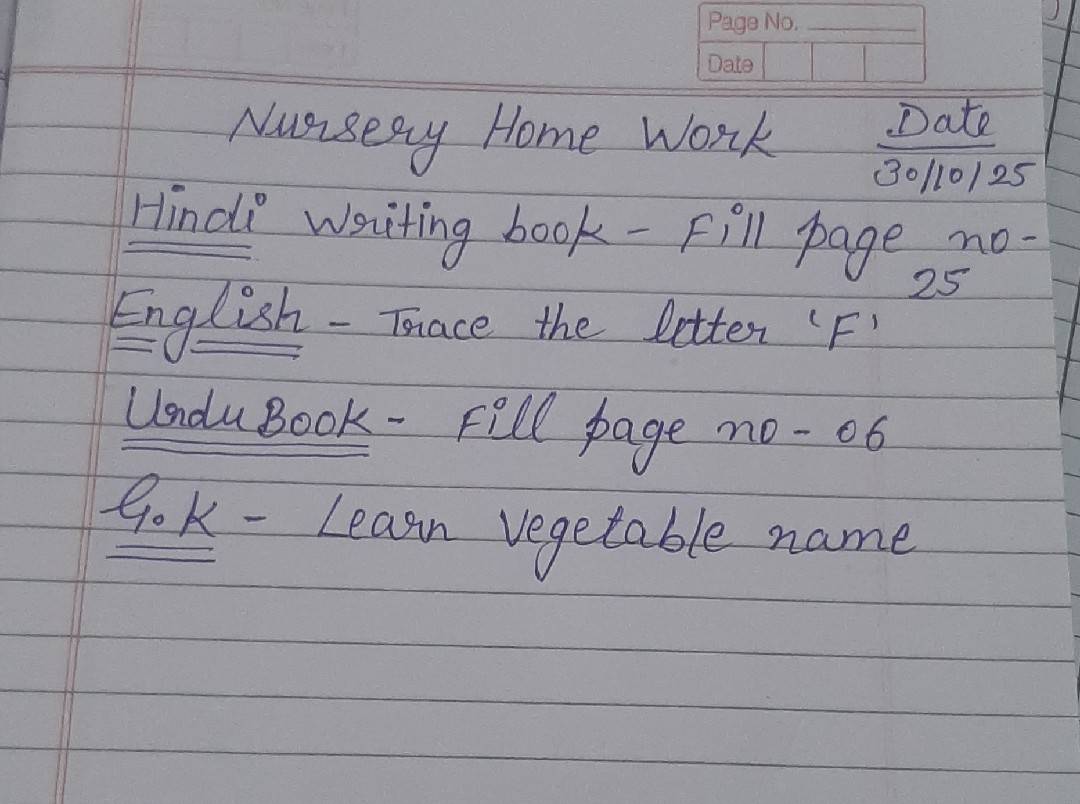 Page No.
Date
Nursery Home Work Date
30/10/25
Hindi Writing book - Fill page no-
25
English - Trace the letter 'F'
Urdu Book - Fill page no - 06
G.K - Learn vegetable name